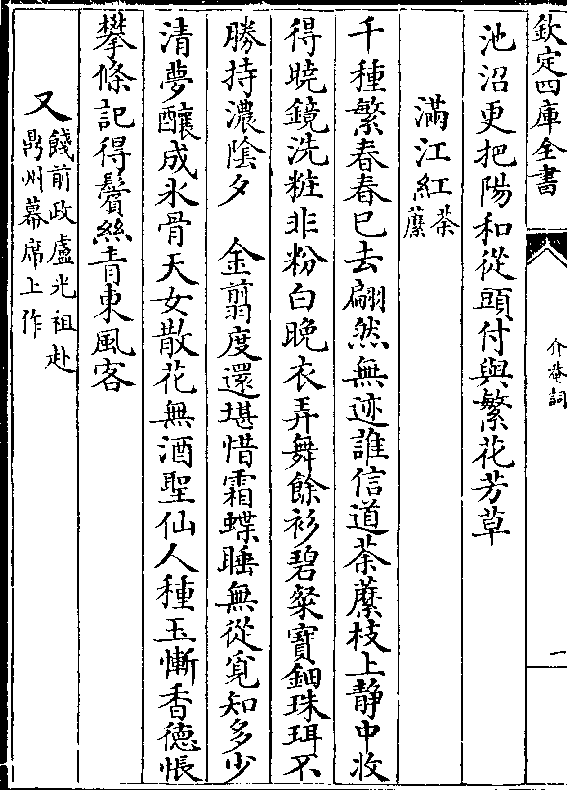 欽定四庫全書
介菴詞
一
池沼更把陽和從頭付與繁花芳草
滿江紅荼蘪
千種繁春春已去翩然無迹誰信道荼蘪枝上静中收
得曉鏡洗粧非粉白晚衣弄舞餘衫碧粲寳鈿珠珥不
勝持濃陰夕　金翦度還堪惜霜蝶睡無從覓知多少
清夢釀成氷骨天女散花無酒聖仙人種玉慚香德悵
攀條記得鬢絲青東風客
又餞前政盧光祖赴
鼎州幕席上作